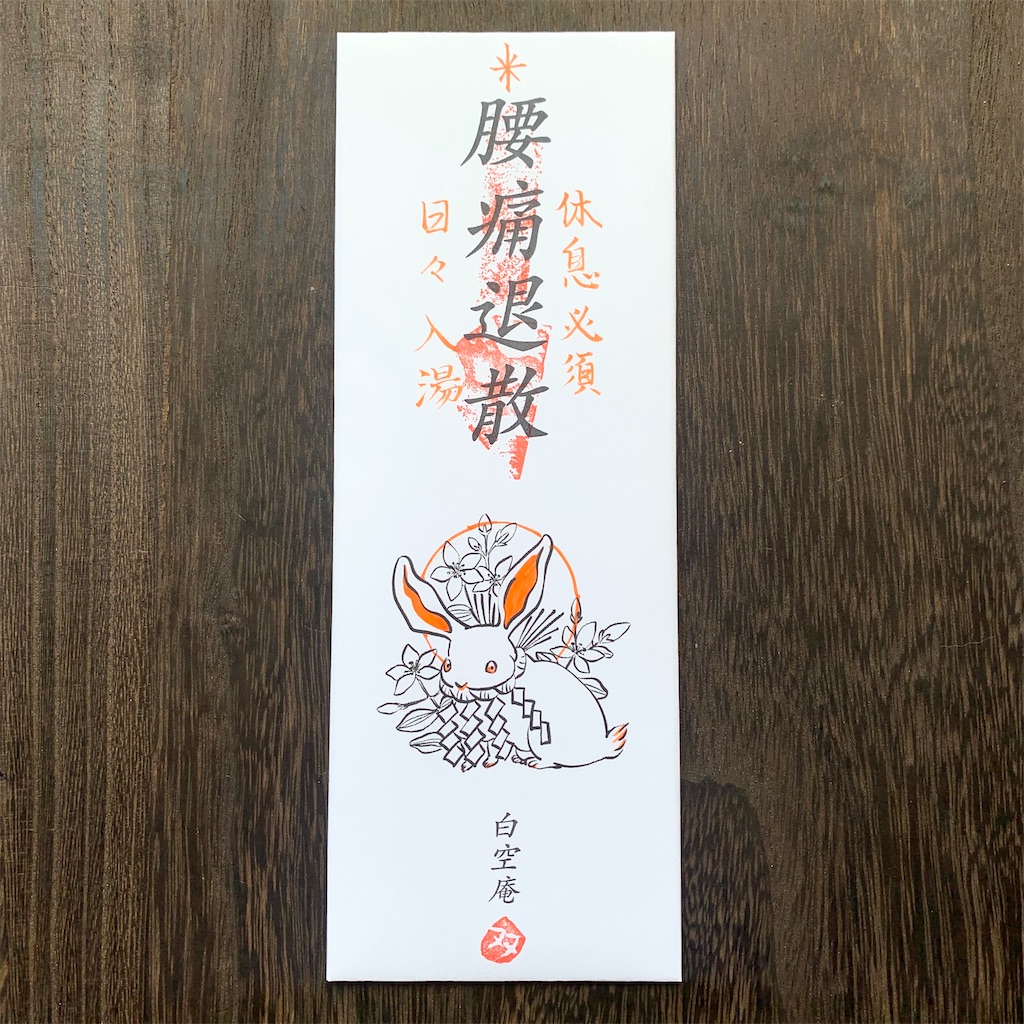 米
腰痛退散
休息必須
日々入湯
白空庵
双